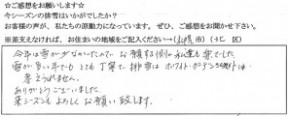 ☆ご感想をお願いします☆
今シーズンの排雪はいかがでしたか？
お客様の声が、私たちの原動力になっています。ぜひ、ご感想をお聞かせ下さい。
※差支えなければ、お住まいの地域をご記入ください→(札幌市)(北区)
今年は雪が少なかったのでお願する側の私達も楽でした
雪が多い年でもとても丁寧で排雪はホワイト・ガーデン以外は
考えられません。
ありがとうございました。
来シーズンもよろしくお願い致します。